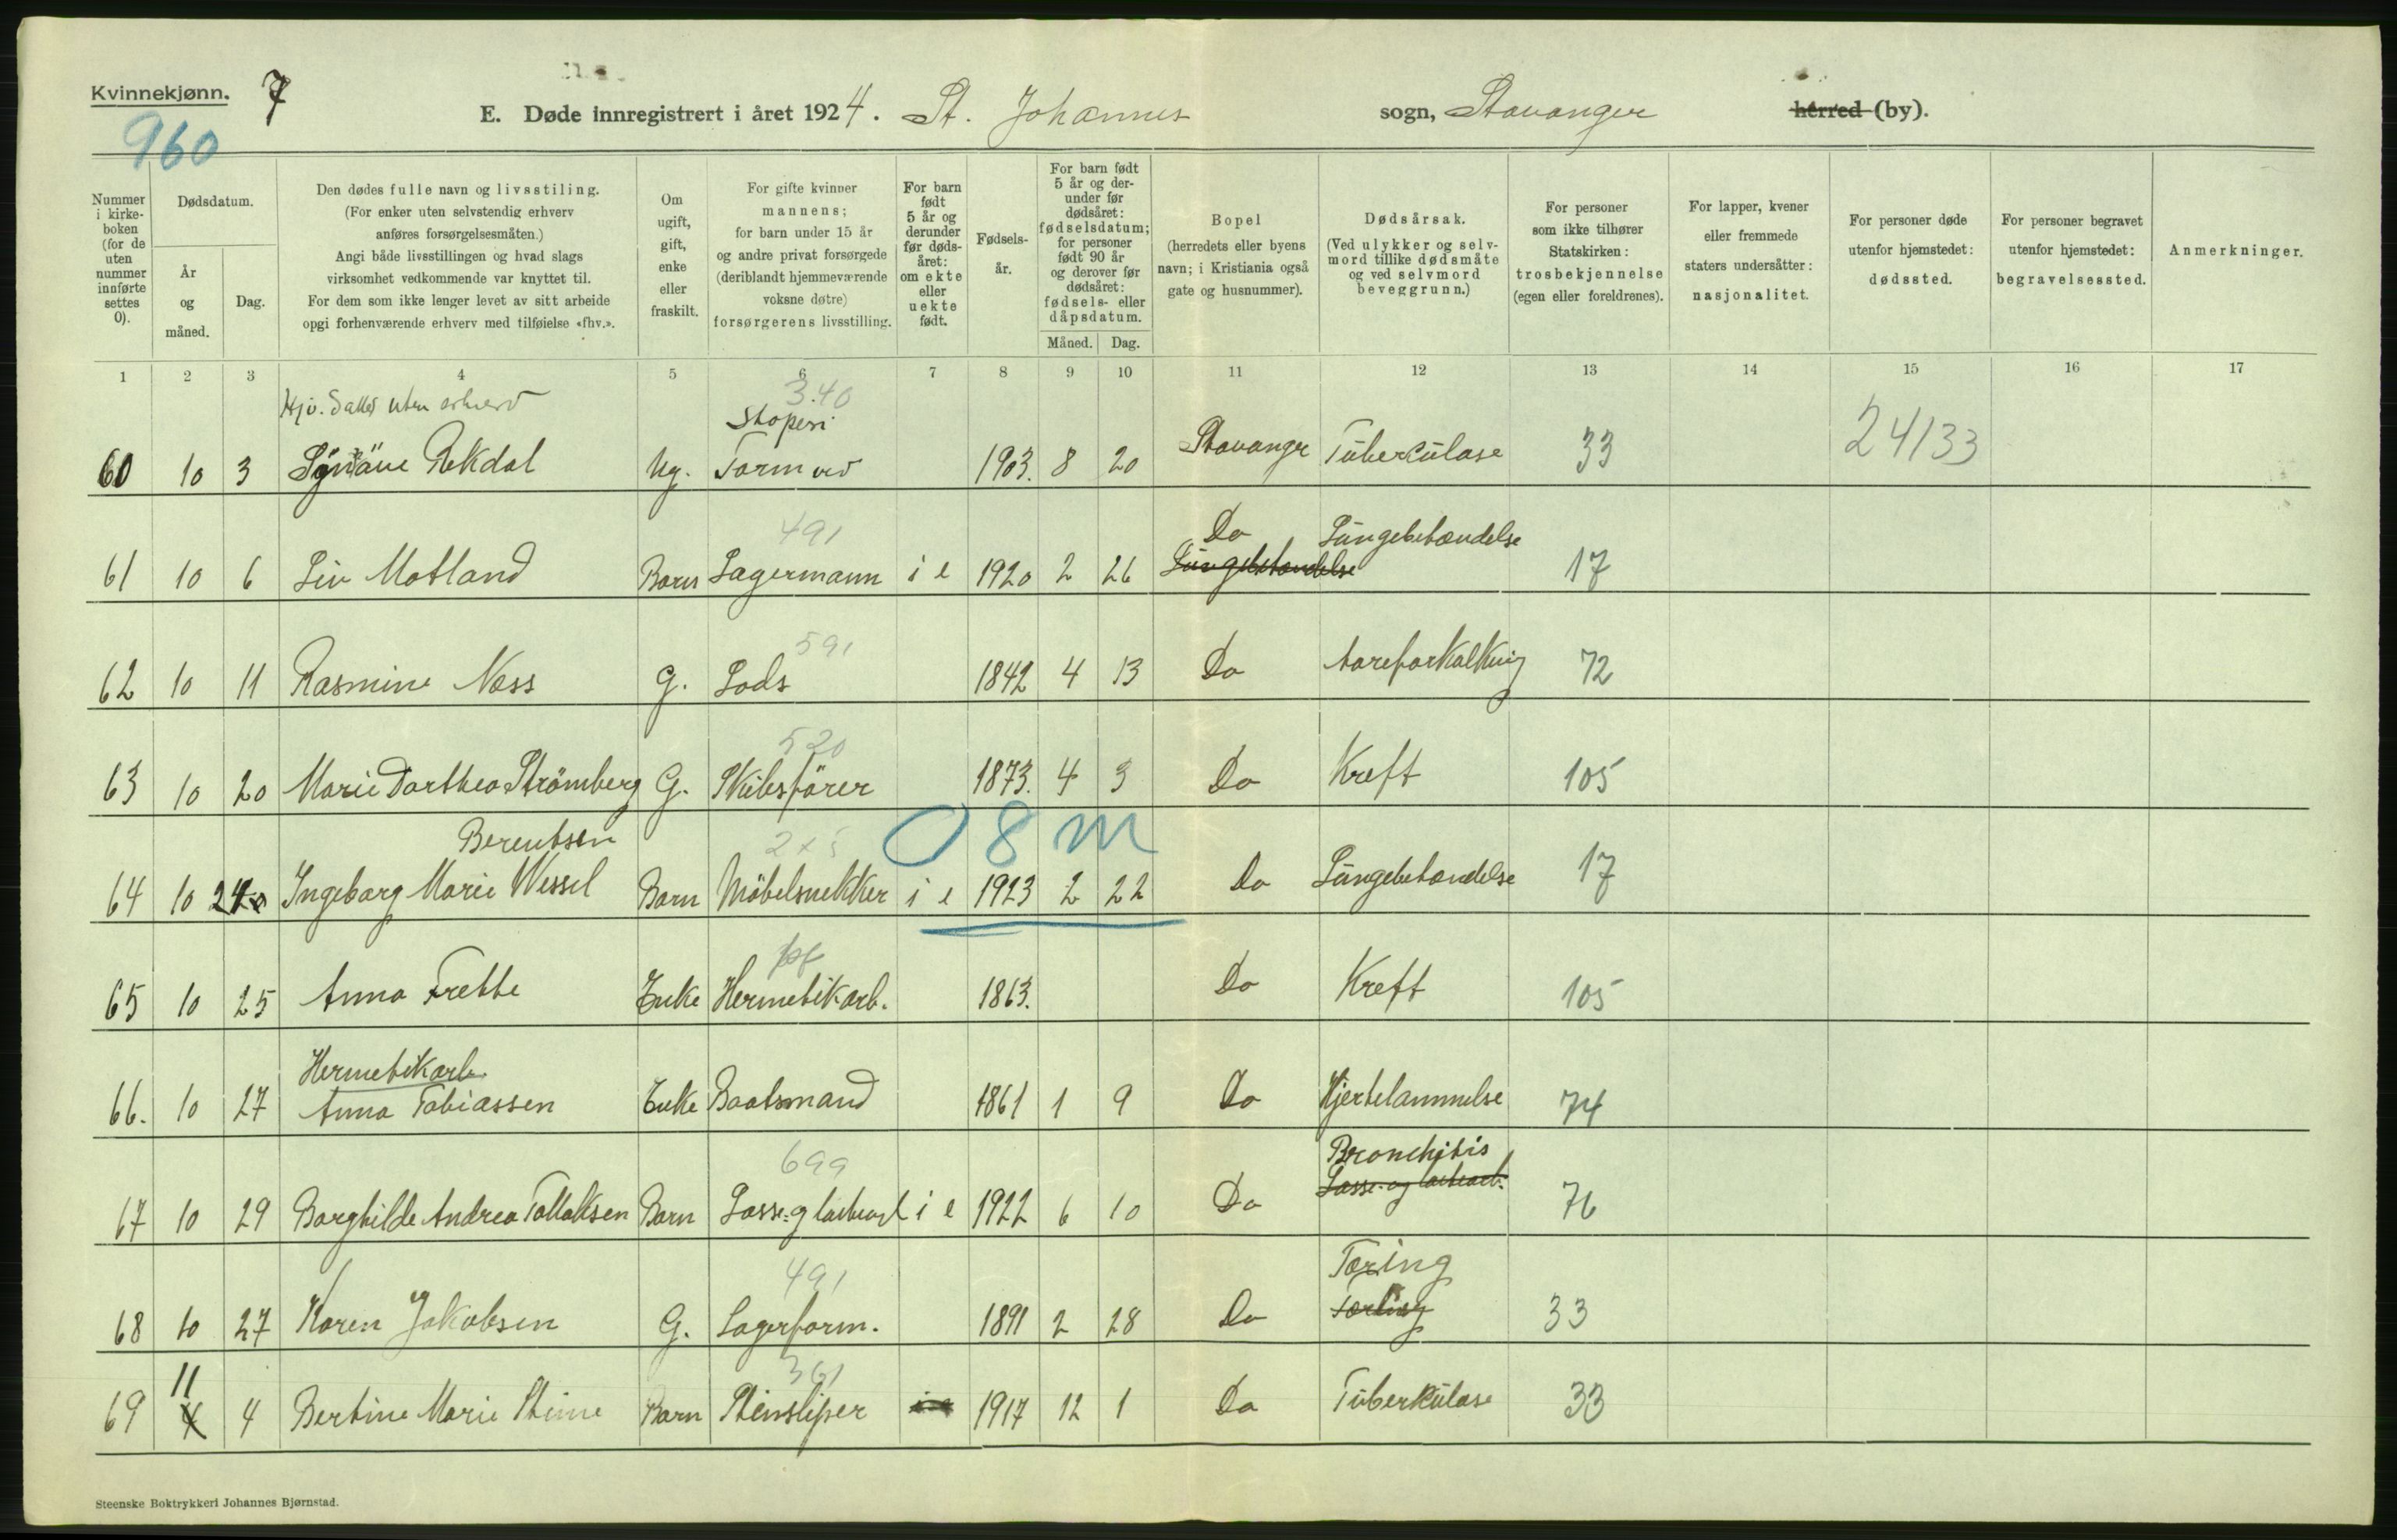 Kvinnekjønn. 7
960
E. Døde innregistrert i året 1924. St. Johannes sogn, Stavanger herred (by).
Nummer i kirkeboken (for de uten nummer innførte settes 0).
Dødsdatum.
År og måned.
Dag.
Den dødes fulle navn og livsstiling. (For enker uten selvstendig erhverv anføres forsørgelsesmåten.) Angi både livsstillingen og hvad slags virksomhet vedkommende var knyttet til. For dem som ikke lenger levet av sitt arbeide opgi forhenværende erhverv med tilføielse «fhv.».
Om ugift, gift, enke eller fraskilt.
For gifte kvinner mannens; for barn under 15 år og andre privat forsørgede (deriblandt hjemmeværende voksne døtre) forsørgerens livsstilling.
For barn født 5 år og derunder før dødsåret: om ekte eller uekte født.
Fødselsår.
For barn født 5 år og derunder før dødsåret: fødselsdatum; for personer født 90 år og derover før dødsåret: fødsels- eller dåpsdatum.
Måned. Dag.
Bopel (herredets eller byens navn; i Kristiania også gate og husnummer).
Dødsårsak. (Ved ulykker og selvmord tillike dødsmåte og ved selvmord beveggrunn.)
For personer som ikke tilhører Statskirken: trosbekjennelse (egen eller foreldrenes).
For lapper, kvener eller fremmede staters undersåtter: nasjonalitet.
For personer døde utenfor hjemstedet: dødssted.
For personer begravet utenfor hjemstedet: begravelsessted.
Anmerkninger.
1 2 3 4 5 6 7 8 9 10 11 12 13 14 15 16 17
uten erhverv 3.40
Støperi
60 10 3 Rekdal Ug. Formand 1903. 8 20 Stavanger Tuberkulose 33 24/33
491 Do Lungebetændelse
61 10 6 Liv Motland Barn Lagermann i e 1920 2 26 Lungebetændelse 17
591
62 10 11 Rasmine Næss G. Lods 1842 4 13 Do Aareforkalkning 72
520
63 10 20 Marie Dorthea Strömberg G. Skibsförer 1873. 4 3 Do Kreft 105
Berentsen 08m
64 10 24 Ingeborg Marie Wessel Barn Möbelsnekker i e 1923 2 22 Do Lungebetændelse 17
65 10 25 Anna Frette Enke Hermetikarb. 1863. Do Kreft 105
Hermetikarb.
66. 10 27 Anna Tobiassen Enke Baatsmand 1861 1 9 Do Hjertelammelse 74
699 Bronchitis
67 10 29 Borghilde Andrea Tollaksen Barn Losse- og lastearb i e 1922 6 10 Do Losse- og lastearb. 76
491 Tæring
68 10 27 Karen Jakobsen G. Lagerform. 1891 2 28 Do Tæring 33
11 361
69 4 Bertine Marie Stime Barn Stensliper 1917 12 1 Do Tuberkulose 33
Steenske Boktrykkeri Johannes Bjørnstad.